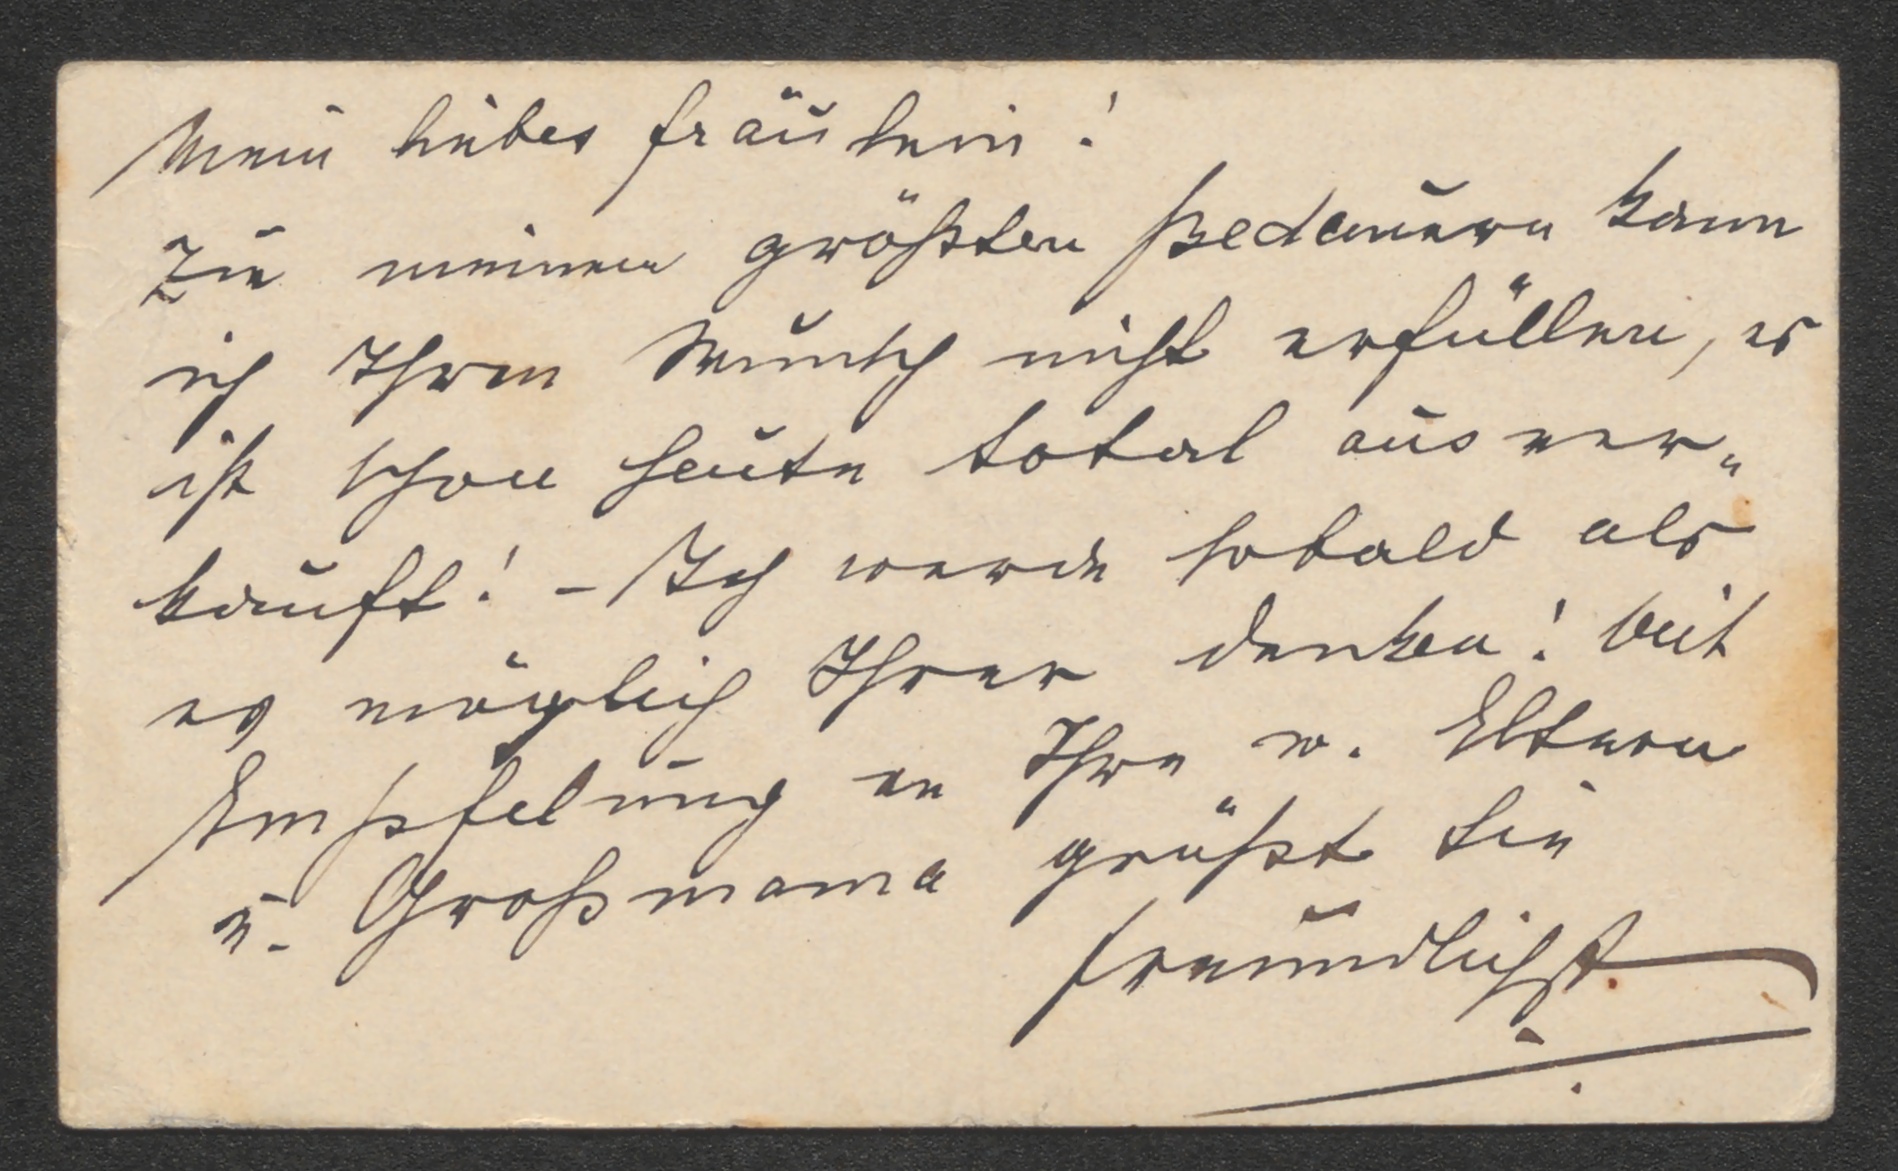 Mein liebes Fräulein!
Zu meinem größten Bedauern kann
ich Ihren Wunsch nicht erfüllen, es
ist schon heute total ausver„
kauft! – Ich werde sobald als
es möglich Ihrer denken! Mit
Empfelung an Ihre w. Eltern
u. Großmama grüßt Sie
freundlichst